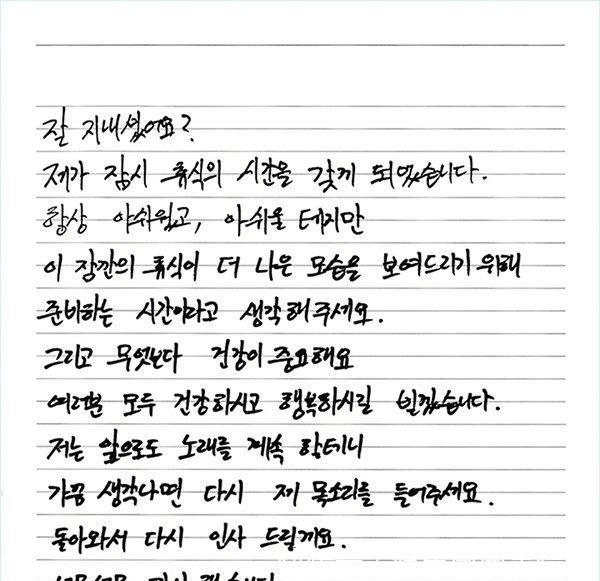 잘 지내셨어요?
제가 잠시 휴식의 시간을 갖게 되었습니다.
항상 아쉬웠고, 아쉬울 테지만
이 잠깐의 휴식이 더 나은 모습을 보여드리기 위해
준비하는 시간이라고 생각해주세요.
그리고 무엇보다 건강이 중요해요
여러분 모두 건강하시고 행복하시길 빌겠습니다.
저는 앞으로도 노래를 계속 할테니
가끔 생각나면 다시 제 목소리를 들어주세요.
돌아와서 다시 인사 드릴게요.